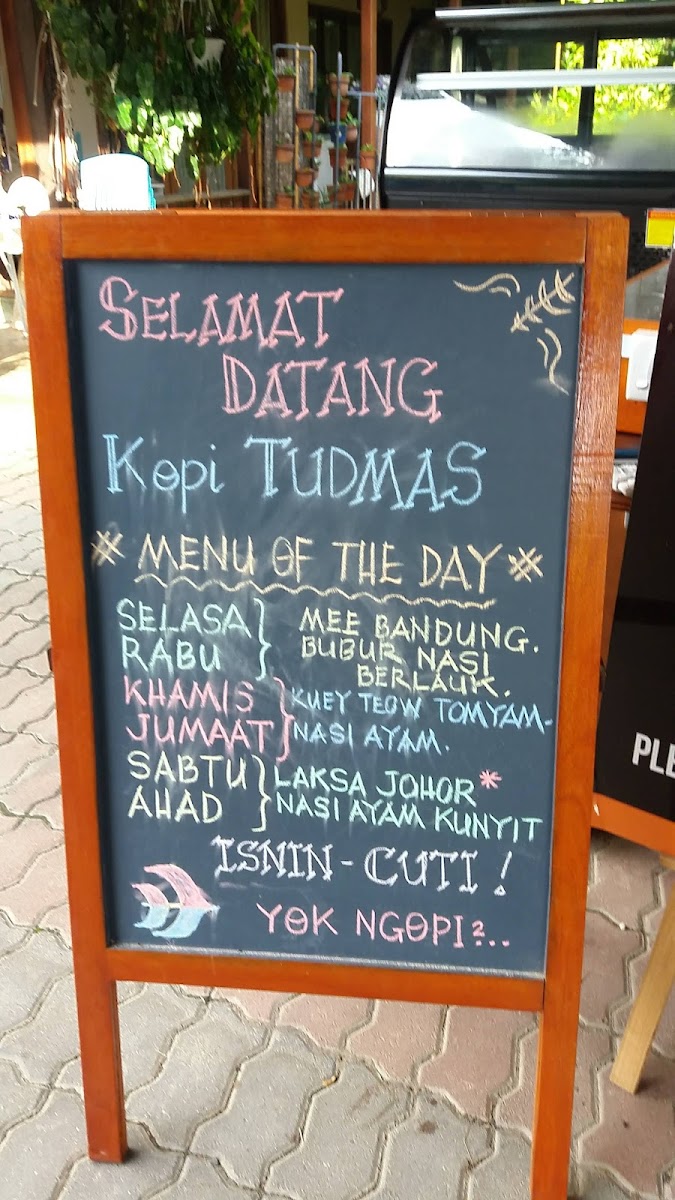 SELAMAT
DATANG
Kopi TUDMAS
* MENU OF THE DAY *
SELASA } MEE BANDUNG.
RABU BUBUR NASI
BERLAUK.
KHAMIS } KUEY TEOW TOMYAM.
JUMAAT NASI AYAM.
SABTU } LAKSA JOHOR *
AHAD NASI AYAM KUNYIT
ISNIN - CUTI !
YOK NGOPI?..